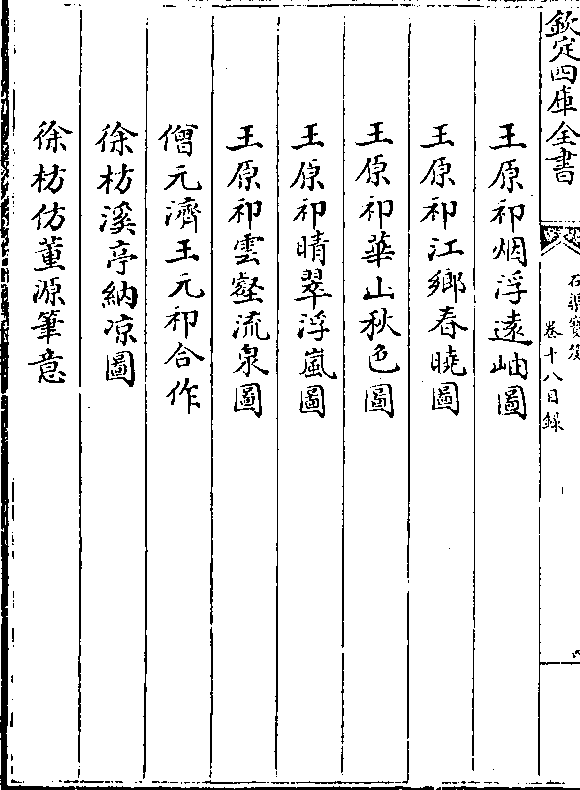 欽定四庫全書
石渠寶笈
卷十八目録
王原祁烟浮遠岫圖
王原祁江鄉春曉圖
王原祁華山秋色圖
王原祁晴翠浮嵐圖
王原祁雲壑流泉圖
僧元濟王元祁合作
徐枋溪亭納凉圖
徐枋仿董源筆意